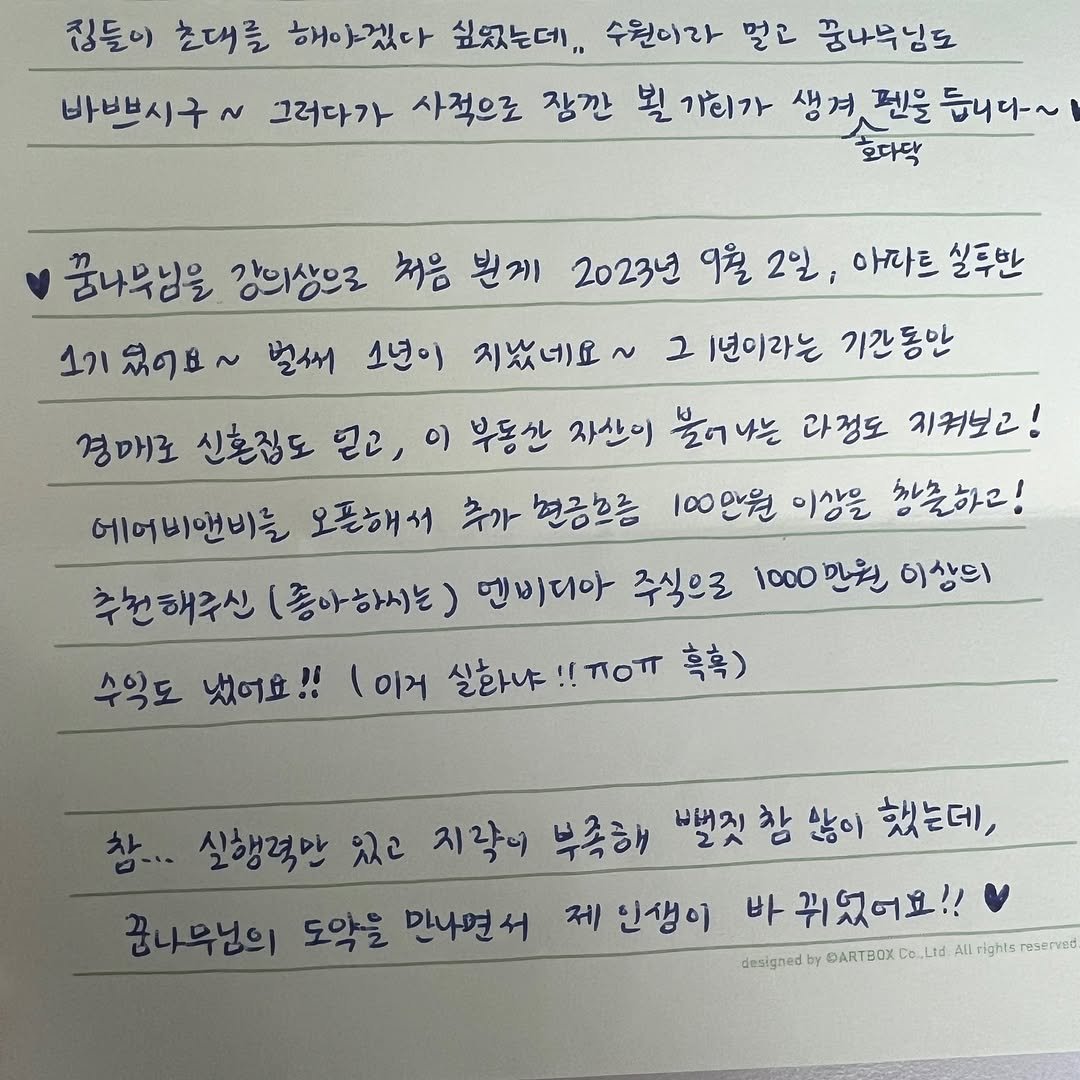 집들이 초대를 해야겠다 싶었는데,, 수원이라 멀고 꿈나무님도
바쁘시구~ 그러다가 사적으로 잠깐 뵐 기회가 생겨 호다닥 펜을 듭니다~♥
♥ 꿈나무님을 강의상으로 처음 뵌게 2023년 9월 2일, 아파트 실투반
1기 였어요~ 벌써 1년이 지났네요~ 그 1년이라는 기간동안
경매로 신혼집도 얻고, 이 부동산 자산이 불어나는 과정도 지켜보고!
에어비앤비를 오픈해서 추가 현금흐름 100만원 이상을 창출하고!
추천해주신 (좋아하시는) 엔비디아 주식으로 1000만원 이상의
수익도 냈어요!! (이거 실화냐!! ㅠOㅠ 흑흑)
참... 실행력만 있고 지략이 부족해 뻘짓 참 많이 했는데,
꿈나무님의 도약을 만나면서 제 인생이 바뀌었어요!! ♥
designed by ©ARTBOX Co.,Ltd. All rights reserved.